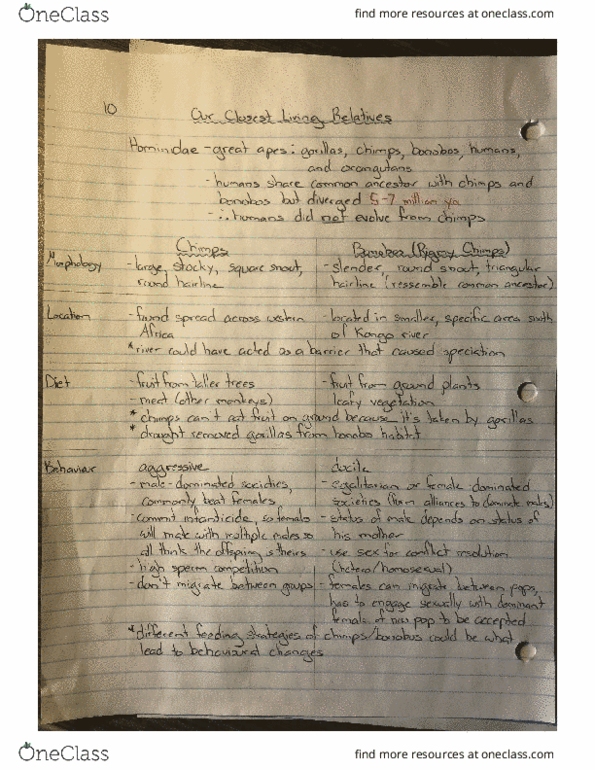 OneClass
find more resources at oneclass.com
10
Our Closest Living Relatives
Hominidae - great apes: gorillas, chimps, bonobos, humans,
and orangutans
- humans share common ancestor with chimps and
bonobos but diverged 5-7 million ya
- ∴ humans did not evolve from chimps
Chimps
Bonobos (Pigmy Chimps)
Morphology
- large, stocky, square snout,
round hairline
- slender, round snout, triangular
hairline (ressemble common ancestor)
Location
- found spread across western
Africa
- located in smaller, specific area south
of Kongo river
* river could have acted as a barrier that caused speciation
Diet
- fruit from taller trees
- meat (other monkeys)
- fruit from ground plants
leafy vegetation
* chimps can't eat fruit on ground because it's taken by gorillas
* drought removed gorillas from bonobo habitat
Behaviour
aggressive
- male-dominated societies,
commonly beat females
- commit infanticide, so females
will mate with multiple males so
all think the offspring is theirs
- high sperm competition
- don't migrate between groups
docile
- egalitarian or female-dominated
societies (form alliances to dominate males)
- status of male depends on status of
his mother
- use sex for conflict resolution
(hetero/homosexual)
- females can migrate between pops,
has to engage sexually with dominant
female of new pop to be accepted
* different feeding strategies of chimps/bonobos could be what
lead to behavioural changes
OneClass
find more resources at oneclass.com